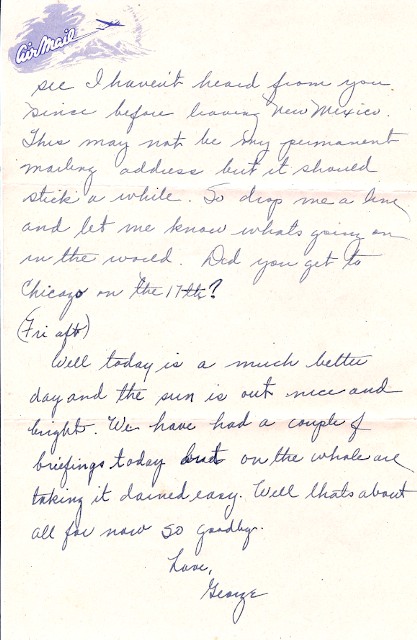 Air Mail
see I haven't heard from you
since before leaving New Mexico.
This may not be my permanent
mailing address but it should
stick a while. So drop me a line
and let me know whats going on
in the world. Did you get to
Chicago on the 17th?
(Fri aft)
Well today is a much better
day and the sun is out nice and
bright. We have had a couple of
briefings today but on the whole are
taking it darned easy. Well thats about
all for now so goodby.
Love,
George